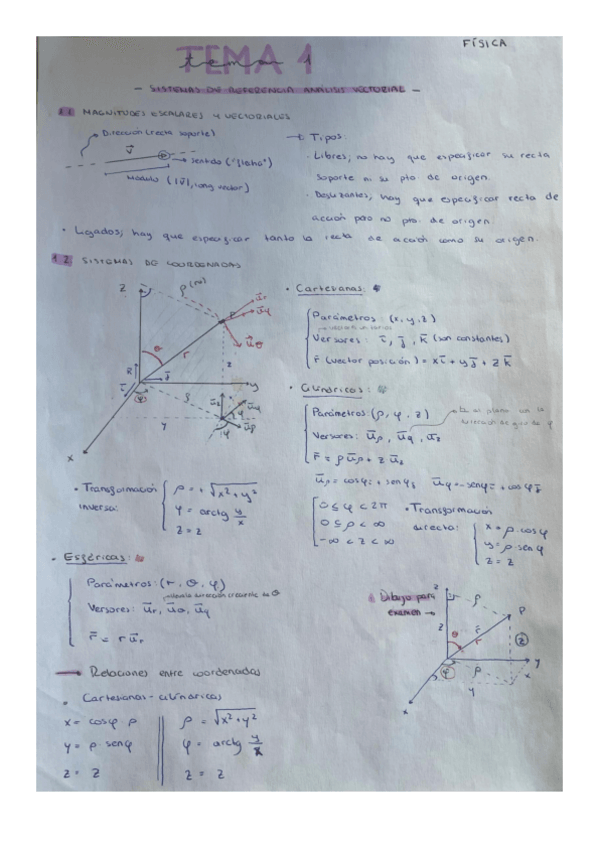 FÍSICA
TEMA 1
tema 1
- SISTEMAS DE REFERENCIA ANÁLISIS VECTORIAL -
1.1 MAGNITUDES ESCALARES Y VECTORIALES
Dirección (recta soporte)
v
sentido ("flecha")
Módulo (|v|, long vector)
→ Tipos:
· Libres, no hay que especificar su recta
soporte ni su pto de origen.
· Deslizantes, hay que especificar recta de
acción pero no pto. de origen.
· Ligados, hay que especificar tanto la recta de acción como su origen.
1.2 SISTEMAS DE COORDENADAS
z
P
r
θ
φ
ρ
y
x
· Cartesianas:
Parámetros: (x, y, z)
Versores: i, j, k (son constantes)
r (vector posición) = xi + yj + zk
· Cilíndricos:
Parámetros: (ρ, φ, z)
Versores: uρ, uφ, uz
r = ρuρ + z uz
uρ = cosφi + senφj uφ = -senφi + cosφj
· Transformación
inversa:
ρ = +√x²+y²
φ = arctg y/x
z = z
0 ≤ φ < 2π
0 ≤ ρ < ∞
-∞ < z < ∞
· Transformación
directa:
x = ρ·cosφ
y = ρ·senφ
z = z
· Esféricas:
Parámetros: (r, θ, φ)
Versores: ur, uθ, uφ
r = r ur
Dibujo para
examen →
z
ρ
P
θ
r
z
y
φ
x
→ Relaciones entre coordenadas
· Cartesianas - cilíndricas
x = cosφ · ρ
y = ρ · senφ
z = z
ρ = √x²+y²
φ = arctg y/x
z = z